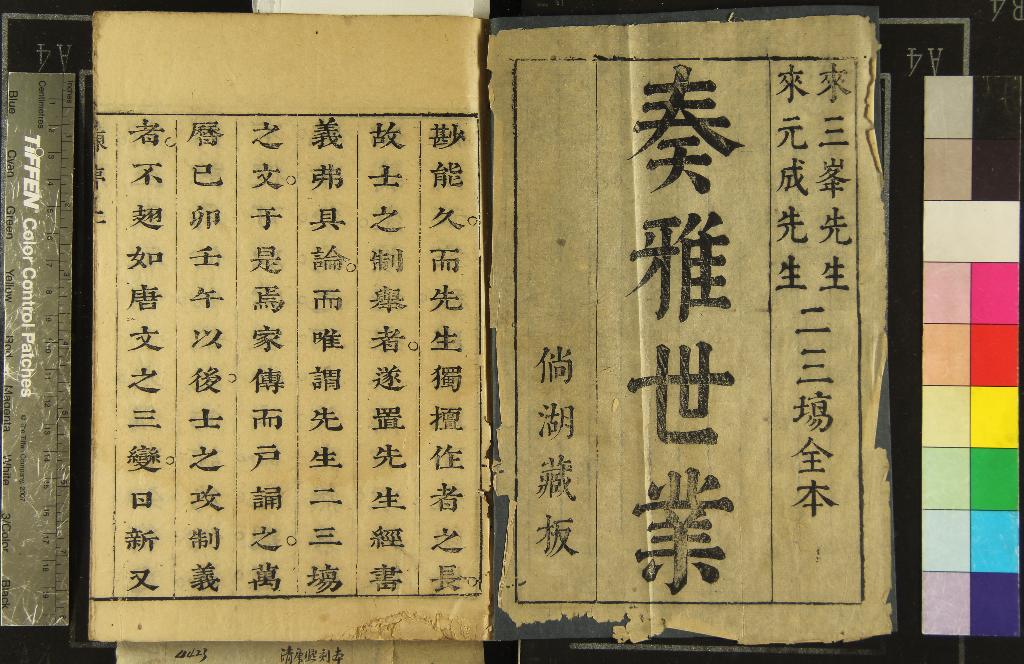 來三峯先生
來元成先生
二三場全本
奏雅世業
倘湖藏板
尠能久而先生獨擅作者之長
故士之制舉者遂置先生經書
義弗具論而唯謂先生二三塲
之文于是焉家傳而戸誦之萬
曆己卯壬午以後士之攻制義
者不翅如唐文之三變日新又
4423
清康熙刻本
TIFFEN Color Control Patches
© The Tiffen Company, 2007
Centimetres
Inches
Blue
Cyan
Green
Yellow
Red
Magenta
White
3/Color
Black
A4
A4